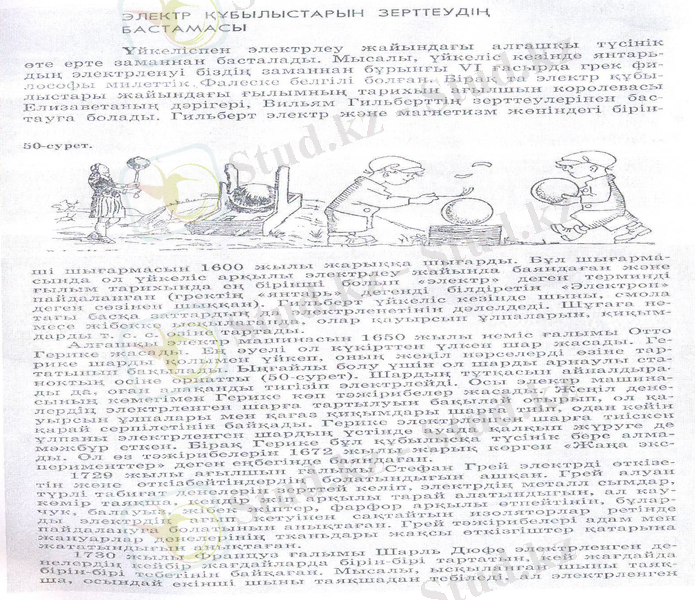 ЭЛЕКТР ҚҰБЫЛЫСТАРЫН ЗЕРТТЕУДІҢ
БАСТАМАСЫ
Үйкеліспен электрлеу жайындағы алғашқы түсінік
өте ерте заманнан басталады. Мысалы, үйкеліс кезінде янтарь-
дың электрленуі біздің заманнан бұрынғы VI ғасырда грек фи-
лософы милеттік Фалеске белгілі болған. Бірақ та электр құбы-
лыстары жайындағы ғылымның тарихы ағылшын королевасы
Елизаветаның дәрігері, Вильям Гильберттің зерттеулерінен бас-
тауға болады. Гильберт электр және магнетизм жөніндегі бірін-
50-сурет.
ші шығармасын 1600 жылы жарыққа шығарды. Бұл шығарма-
сында ол үйкеліс арқылы электрлеу жайында баяндаған және
ғылым тарихында ең бірінші болып «электр» деген терминді
пайдаланған гректің «янтарь» дегенді білдіретін «Электрон»
деген сөзінен шыққан). Гильберт үйкеліс кезінде шыны, смола
тағы басқа заттардың да электрленетінін дәлелдеді. Шұғаға не-
месе жібекке ысқыланғанда, олар қауырсын ұлпаларын, қиқым-
дарды т. с. с. өзіне тартады.
Алғашқы электр машинасын 1650 жылы неміс ғалымы Отто
Герике жасады. Ең әуелі ол күкірттен үлкен шар жасады. Ге-
рике шарды қолымен үйкеп, оның жеңіл нәрселерді өзіне тар-
татынын бақылады. Ыңғайлы болу үшін ол шарды арнаулы ста-
ноктың осіне орнатты (50-сурет). Шардың тұтқасын айналдыра-
ды да, оған алақанды тигізіп электрлейді. Осы электр машина-
сының көмегімен Герике көп тәжірибелер жасады. Жеңіл дене-
лердің электрленген шарға тартылуын бақылай отырып, ол қа-
уырсын ұлпалары мен қағаз қиқымдары шарға тиіп, одан кейін
қарай серпілетінін байқады. Герике электрленген шарға тиіскен
ұлпаны электрленген шардың үстінде қалқып жүруге де
мәжбүр еткен. Бірақ Герике бұл құбылысқа түсінік бере алма-
ды. Ол өз тәжірибелерін 1672 жылы жарық көрген «Жаңа экс-
перименттер» деген еңбегінде баяндаған.
1729 жылы ағылшын ғалымы Стефан Грей электрді өткізе-
тін және өткізбейтіндердің болатындығын ашқан. Грей алуан
түрлі табиғат денелерін зерттей келіп, электрдің металл сымдар,
көмір таяқша, кендір жіп арқылы тарай алатындығын, ал кау-
чук, балауыз, жібек жіптер, фарфор арқылы өтпейтінін, бұлар-
ды электрдің ағып кетуінен сақтайтын изоляторлар ретінде
пайдалануға болатынын анықтаған. Грей тәжірибелері адам мен
жануарлар денелерінің тканьдары жақсы өткізгіштер қатарына
жататындығын анықтаған.
1730 жылы Француз ғалымы Шарль Дюфе электрленген де-
нелердің кейбір жағдайларда бірін-бірі тартатын, кей жағдайда
бірін-бірі тебетінін байқаған. Мысалы, ысқыланған шыны таяқ-
ша, осындай екінші шыны таяқшадан тебіледі, ал электрленген
Stud.kz
Stud.kz
Stud.kz
Stud.kz